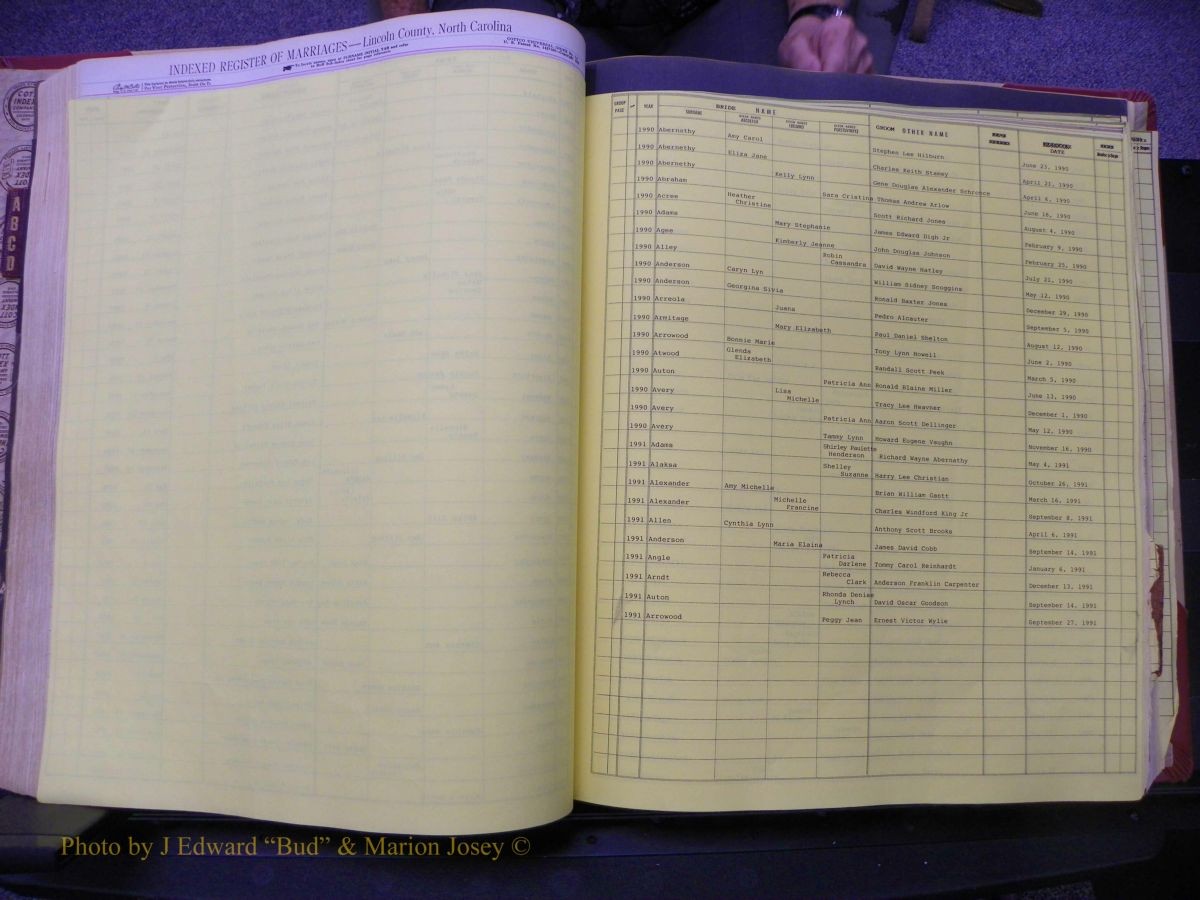 INDEXED REGISTER OF MARRIAGES—Lincoln County, North Carolina
For Your Protection, Insist On It
COTT
INDEX
COMPANY
A
B
C
D
GROUP PAGE YEAR BRIDE NAME GROOM OTHER NAME DATE
SURNAME
1990 Abernathy Amy Carol Stephen Lee Hilburn June 23, 1990
1990 Abernethy Eliza Jane Charles Keith Stamey April 21, 1990
1990 Abernethy Kelly Lynn Gene Douglas Alexander Schronce April 6, 1990
1990 Abraham Sara Cristina Thomas Andrew Arlow June 16, 1990
1990 Acree Heather Christine Scott Richard Jones August 4, 1990
1990 Adams Mary Stephanie James Edward Digh Jr February 9, 1990
1990 Agee Kimberly Jeanne John Douglas Johnson February 25, 1990
1990 Alley Robin Cassandra David Wayne Hatley July 21, 1990
1990 Anderson Caryn Lyn William Sidney Scoggins May 12, 1990
1990 Anderson Georgina Silvia Ronald Baxter Jones December 29, 1990
1990 Arreola Juana Pedro Alcauter September 5, 1990
1990 Armitage Mary Elizabeth Paul Daniel Shelton August 12, 1990
1990 Arrowood Bonnie Marie Tony Lynn Howell June 2, 1990
1990 Atwood Glenda Elizabeth Randall Scott Peek March 5, 1990
1990 Auton Patricia Ann Ronald Blaine Miller June 13, 1990
1990 Avery Lisa Michelle Tracy Lee Heavner December 1, 1990
1990 Avery Patricia Ann Aaron Scott Dellinger May 12, 1990
1990 Avery Tammy Lynn Howard Eugene Vaughn November 16, 1990
1991 Adams Shirley Paulette Henderson Richard Wayne Abernathy May 4, 1991
1991 Alaksa Shelley Suzanne Harry Lee Christian October 26, 1991
1991 Alexander Amy Michelle Brian William Gantt March 16, 1991
1991 Alexander Michelle Francine Charles Windford King Jr September 8, 1991
1991 Allen Cynthia Lynn Anthony Scott Brooks April 6, 1991
1991 Anderson Maria Elaina James David Cobb September 14, 1991
1991 Angle Patricia Darlene Tommy Carol Reinhardt January 6, 1991
1991 Arndt Rebecca Clark Anderson Franklin Carpenter December 13, 1991
1991 Auton Rhonda Denise Lynch David Oscar Goodson September 14, 1991
1991 Arrowood Peggy Jean Ernest Victor Wylie September 27, 1991
Photo by J Edward “Bud” & Marion Josey ©